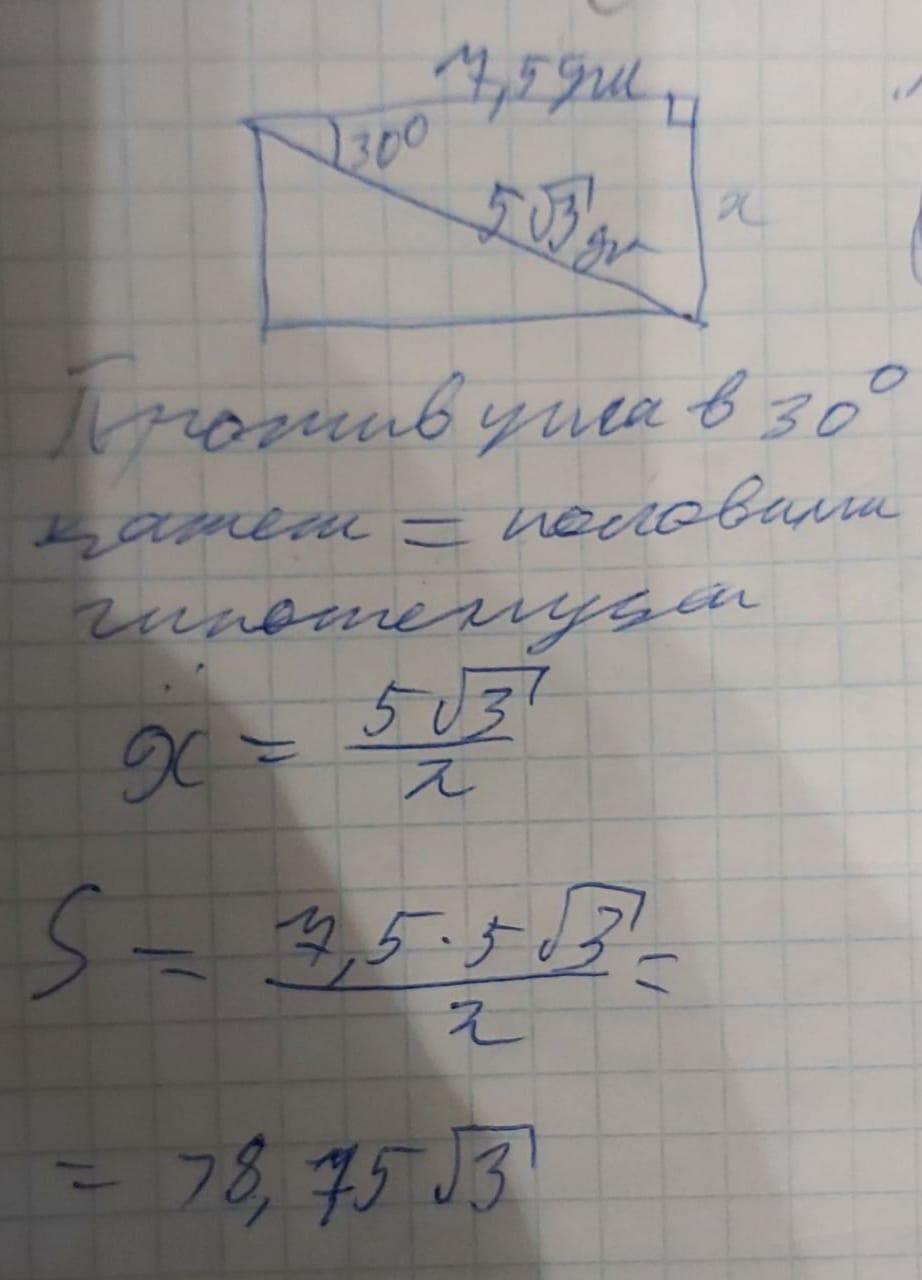 7,5 дм
30°
5√3 дм
x
Против угла в 30°
катет = половины
гипотенузы
x = 5√3 / 2
S = 7,5 · 5√3 / 2 =
= 18,75√3